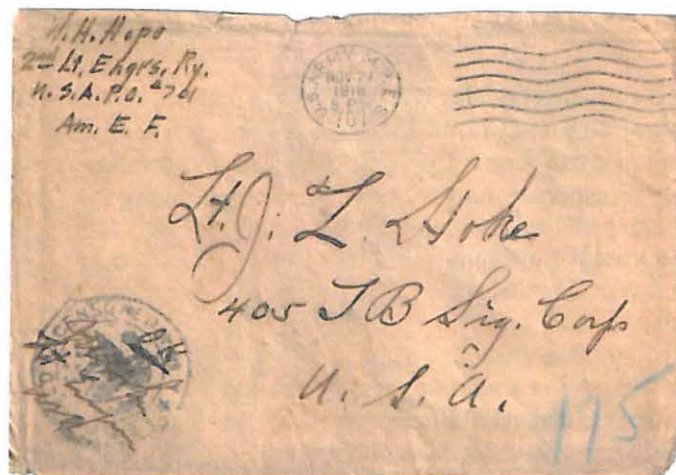 H. H. Hope
2nd Lt. Engrs, Ry.
U.S.A.P.O. #701
Am. E. F.
U.S. ARMY M.P.E.S.
NOV 27
1918
701
Lt. J. L. Hoke
405 T B Sig. Corps
U. S. A.
175